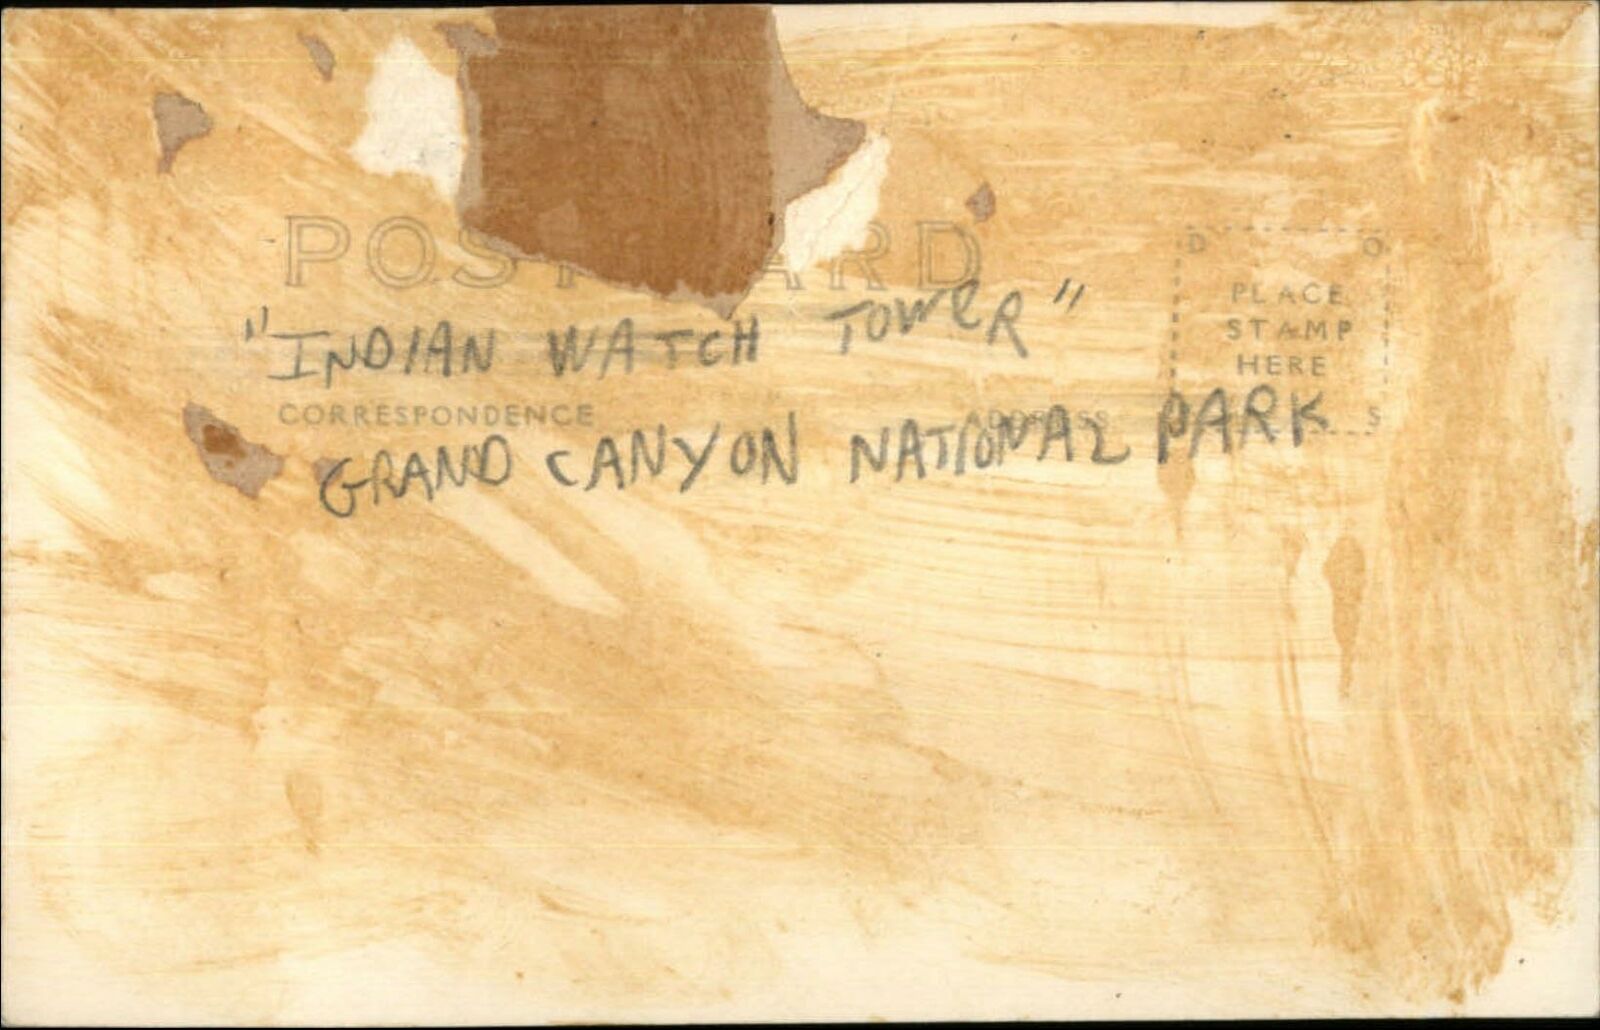 POSTCARD
"INDIAN WATCH TOWER"
CORRESPONDENCE
ADDRESS
GRAND CANYON NATIONAL PARK
D O
PLACE
STAMP
HERE
S